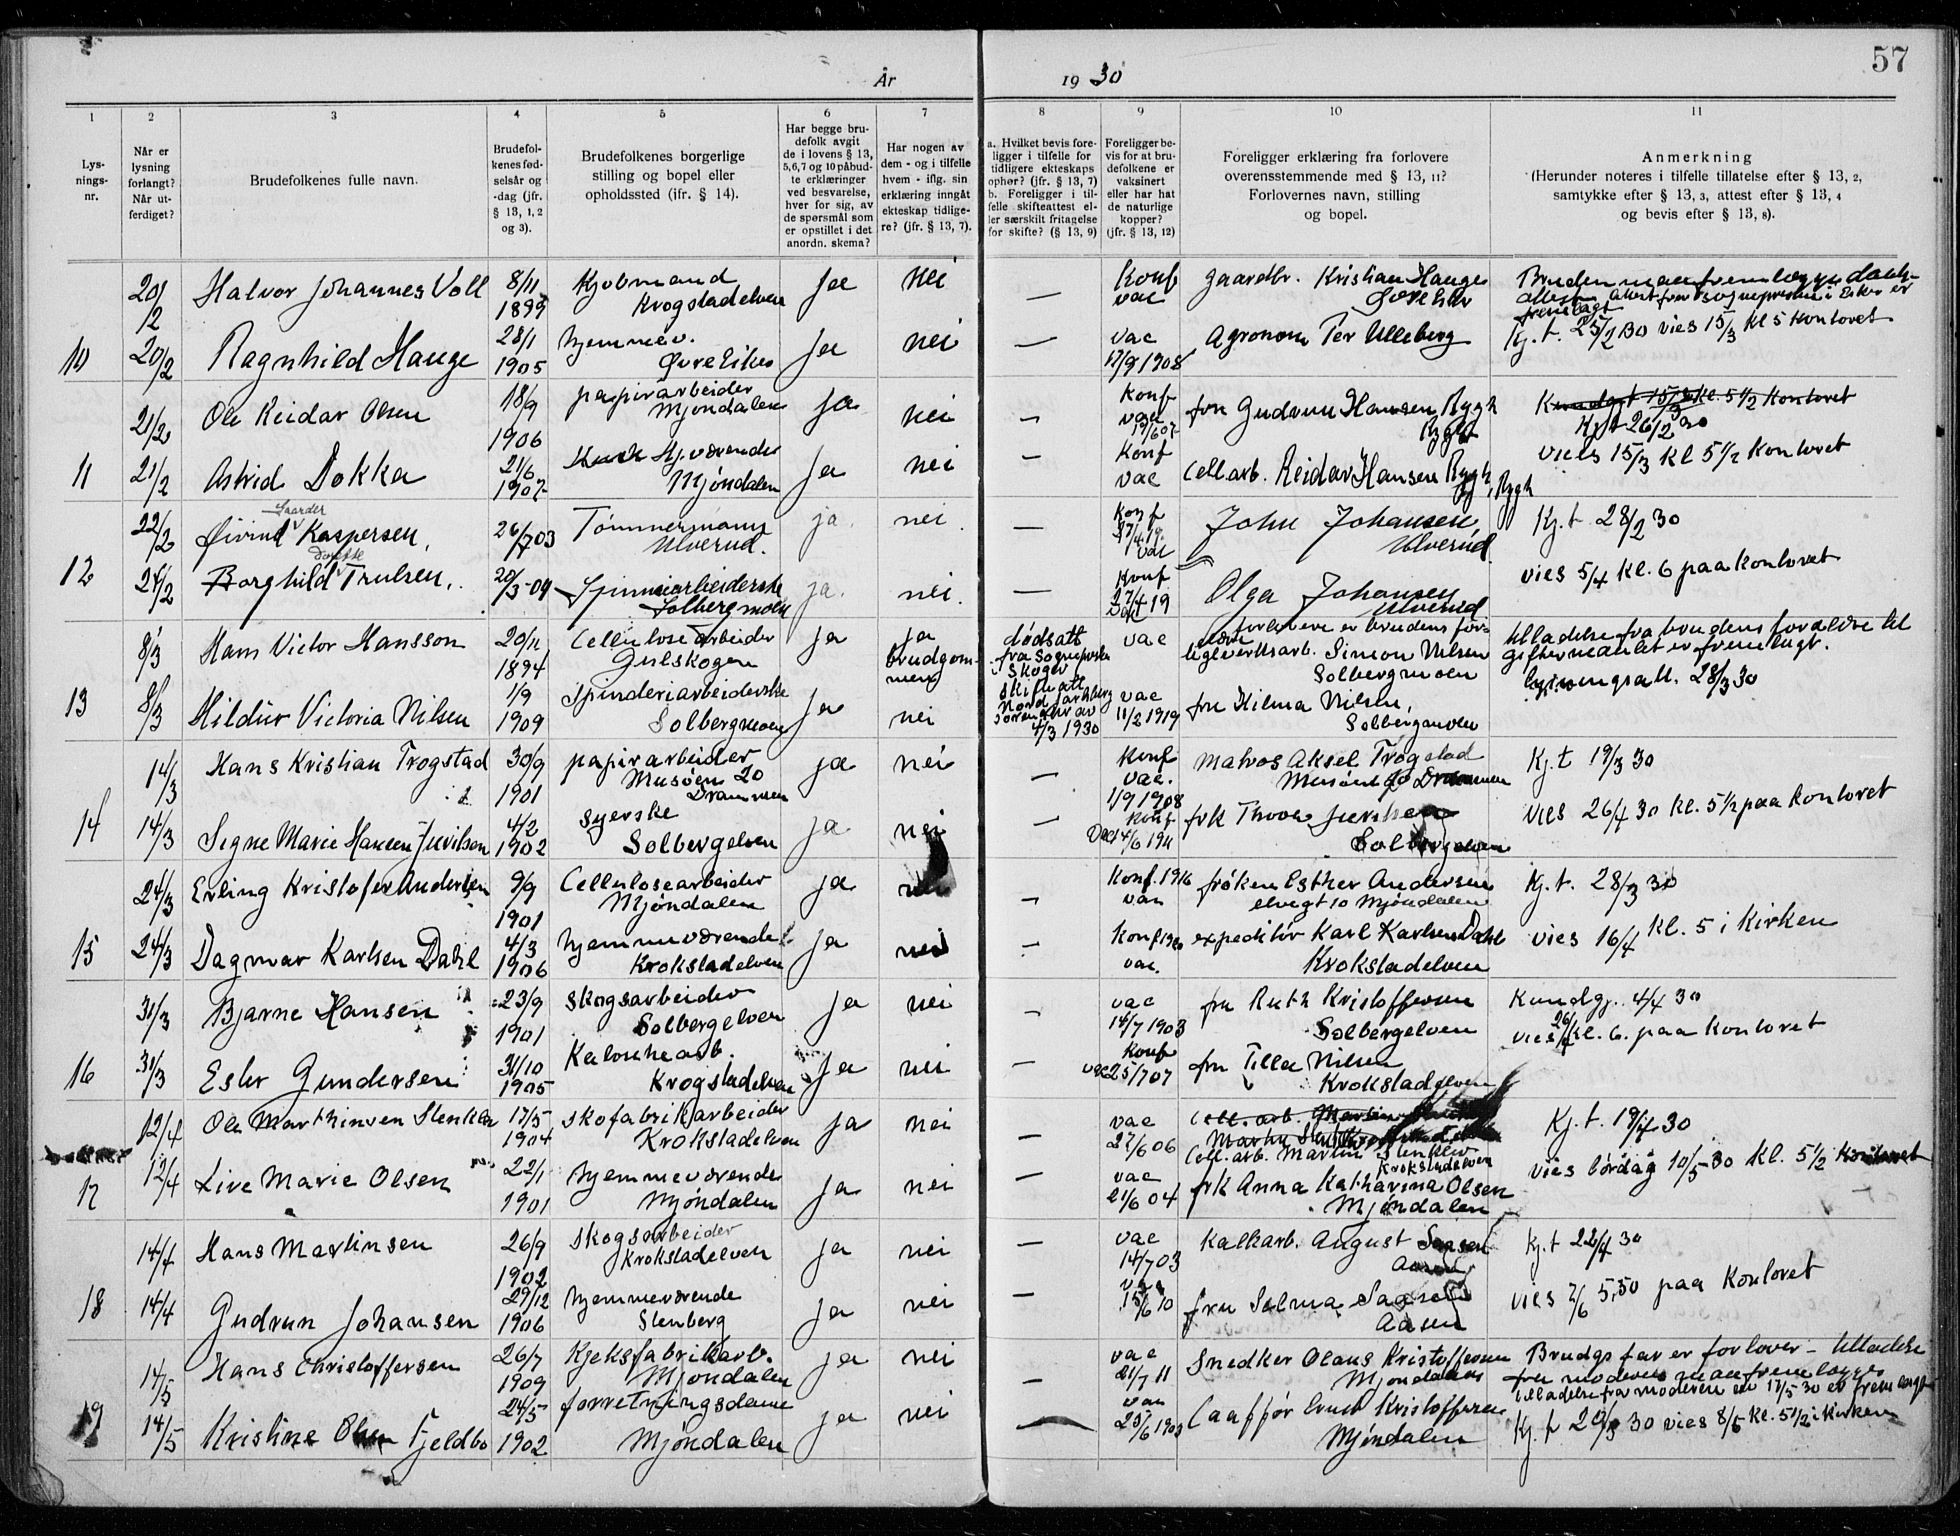 57
År 1930
1 2 3 4 5 6 7 8 9 10 11
Lys-
nings-
nr.
Når er
lysning
forlangt?
Når ut-
ferdiget?
Brudefolkenes fulle navn.
Brudefol-
kenes fød-
selsår og
-dag (jfr.
§ 13, 1, 2
og 3).
Brudefolkenes borgerlige
stilling og bopel eller
opholdssted (ifr. § 14).
Har begge bru-
defolk avgit
de i lovens § 13,
5,6,7 og 10 påbud-
te erklæringer
ved besvarelse,
hver for sig, av
de spørsmål som
er opstillet i det
anordn. skema?
Har nogen av
dem - og i tilfelle
hvem - iflg. sin
erklæring inngått
ekteskap tidlige-
re? (jfr. § 13, 7).
a. Hvilket bevis fore-
ligger i tilfelle for
tidligere ekteskaps
ophør? (jfr. § 13, 7)
b. Foreligger i til-
felle skifteattest el-
ler særskilt fritagelse
for skifte? (§ 13, 9)
Foreligger be-
vis for at bru-
defolkene er
vaksinert
eller har hat
de naturlige
kopper?
(jfr. § 13, 12)
Foreligger erklæring fra forlovere
overensstemmende med § 13, 11?
Forlovernes navn, stilling
og bopel.
Anmerkning
(Herunder noteres i tilfelle tillatelse efter § 13, 2,
samtykke efter § 13, 3, attest efter § 13, 4
og bevis efter § 13, 8).
20/2 Halvor Johannes Voll 8/11 1899 Kjøbmand Krogstadelven ja nei — Konf vac gaardbr. Kristian Hauge Øvre Eiker Bruden maa fremlægge daabs-
attest
fremlagt
10 20/2 Ragnhild Hauge 28/1 1905 hjemmev. Øvre Eiker ja nei — vac 17/9 1908 Agronom Per Ulleberg Kj. t. 25/2 30 vies 15/3 kl 5 kontoret
21/2 Ole Reidar Olsen 18/9 1906 papirarbeider Mjøndalen ja nei — Konf vac fru Gudrun Hansen Rygh Rygh kl. 5 1/2 kontoret
Kj. t 26/2 30
11 21/2 Astrid Dokka 21/6 1907 Hjv. værende Mjøndalen ja nei — Konf vac Cell arb. Reidar Hansen Rygh, Rygh vies 15/3 kl 5 1/2 kontoret
22/2 Øivind Kaspersen, 26/7 03 Tømmermann Ulverud. ja. nei. — Konf vac John Johansen Ulverud Kj. t 28/2 30
12 24/2 Borghild Dorthe Trulsen. 20/3-09 Spinneriarbeiderske Solbergmoen ja. nei. — Konf 27/4 19 Olga Johansen Ulverud vies 5/4 kl. 6 paa kontoret
8/3 Hans Victor Hansson 20/11 1894 Cellulosearbeider Gulskogen ja ja brudgom-
men dødsatt.
fra Sogneprsten
i Skoger
skifteatt
Nord Jarlsberg
Sorenskr av
4/3 1930 vac forlovere er brudens for-
ældre
teglverksarb. Simon Nilsen
Solbergmoen tilladelse fra brudens forældre til
giftermaalet er fremlagt.
13 8/3 Hildur Victoria Nilsen 1/9 1909 Spinderiarbeiderske Solbergmoen ja nei vac 11/2 1919 fru Hilma Nilsen, Solbergmoen lysningsatt. 28/3 30
14/3 Hans Kristian Trogstad 30/9 1901 papirarbeider Musøen 20 Drammen ja nei — Konf vac. 1/9 1908 Matros Aksel Trogstad Musøen 20 Drammen Kj. t 19/3 30
14 14/3 Signe Marie Hansen Juvilsen 4/2 1902 syerske Solbergelven ja nei — Konf Vac 14/6 1911 frk Thora Solbergelven vies 26/4 30 kl. 5 1/2 paa kontoret
24/3 Erling Kristofer Andersen 9/9 1901 Cellulosearbeider Mjøndalen ja nei — Konf. 1916 vac frøken Esther Andersen elvegt 10 Mjøndalen Kj. t. 28/3 30
15 24/3 Dagmar Karlsen Dahl 4/3 1906 hjemmeværende Krokstadelven ja nei — Konf 1920 vac. expeditør Karl Karlsen Dahl Krokstadelven vies 16/4 kl. 5 i kirken
31/3 Bjarne Hansen 23/9 1901 skogsarbeider Solbergelven ja nei — vac 14/7 1903 fru Ruth Kristoffersen Solbergelven Kundgj. 4/4 30
16 31/3 Ester Gundersen 31/10 1905 Kaloschearb. Krogstadelven ja nei — Konf vac 25/7 07 fru Tilla Nilsen Krokstadelven vies 26/4 kl. 6. paa kontoret
12/4 Ole Marthinsen Stenklev 17/5 1904 skofabrikarbeider Krokstadelven ja nei — vac 27/6 06 Cell. arb. Martin Stenklev Krokstadelven Kj. t. 19/4 30
17 12/4 Live Marie Olsen 22/1 1901 hjemmeværende Mjøndalen ja nei — vac 21/6 04 frk Anna Katharina Olsen Mjøndalen vies lørdag 10/5 30 kl. 5 1/2 kontoret
14/4 Hans Martinsen 26/9 1902 skogsarbeider Krokstadelven ja nei — vac 14/7 03 Kalkarb. August Aasen Kj. t 22/4 30
18 14/4 Gudrun Johansen 29/12 1906 hjemmeværende Stenberg ja nei — vac 15/6 10 fru Selma Aasen vies 7/6 5,30 paa kontoret
14/5 Hans Christoffersen 26/7 1909 Kjeksfabrikarb. Mjøndalen ja nei — vac 21/7 11 Snedker Olaus Kristoffersen Mjøndalen Brudgs far er forlover - tilladelse
fra moderen maa fremlægges
tilladelse fra moderen av 17/5 30 er fremlagt
19 14/5 Kristine Olsen Fjeldbo 24/5 1902 forretningsdame Mjøndalen ja nei — vac Caaffør Ernst Kristoffersen Mjøndalen Kj. t 30 vies 8/6 kl. 5 1/2 i kirken